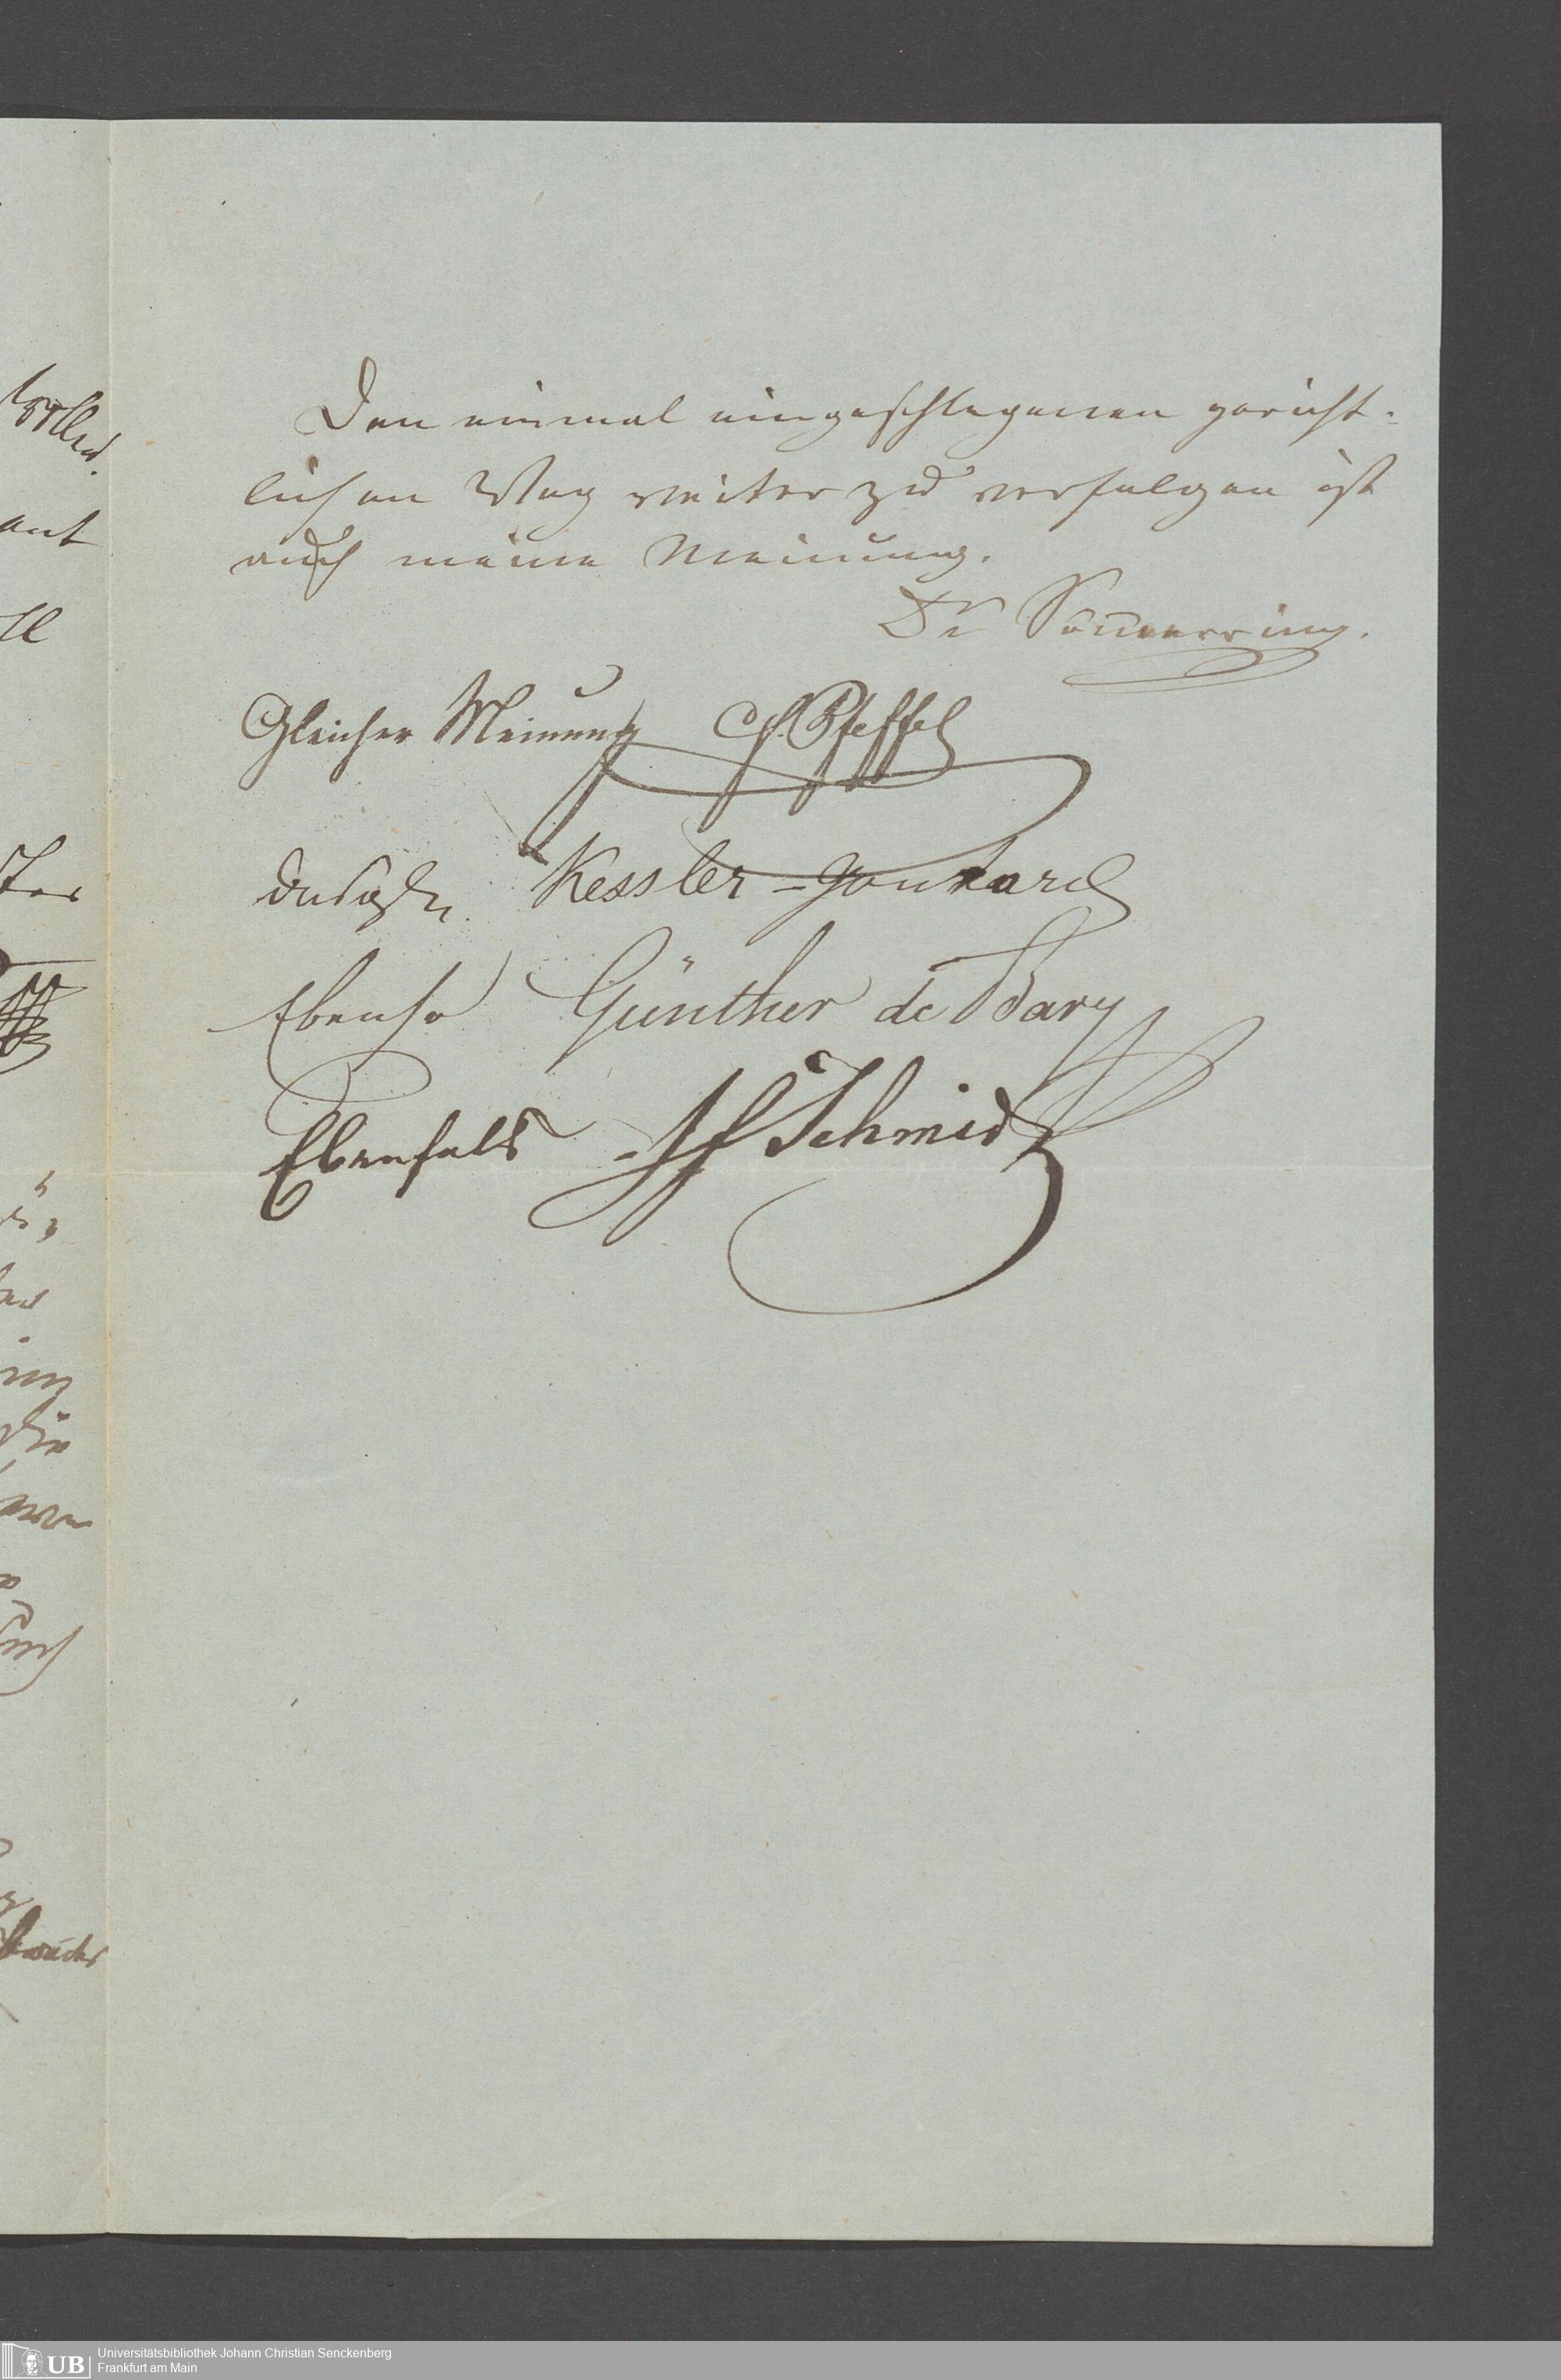 Den einmal eingeschlagenen gericht-
lichen Weg weiter zu verfolgen ist
auch meine Meinung.
Dr Sömmerring.
Gleicher Meinung Pfeffel
Kessler-Gontard
Ebenso Günther de Bary
Ebenfals Schmidt
ant
im
die
UB
Universitätsbibliothek Johann Christian Senckenberg
Frankfurt am Main